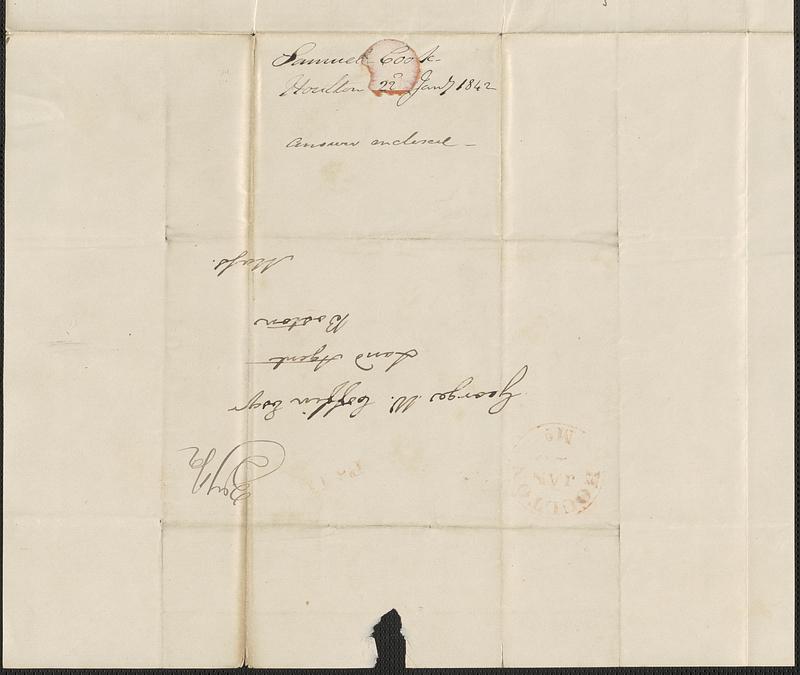 Samuel Cook
Houlton 22d Jany 1842
Answer enclosed –
George W. Coffin Esqr
Land Agent
Boston
Mass.
HOULTON
JAN
Me
PAID